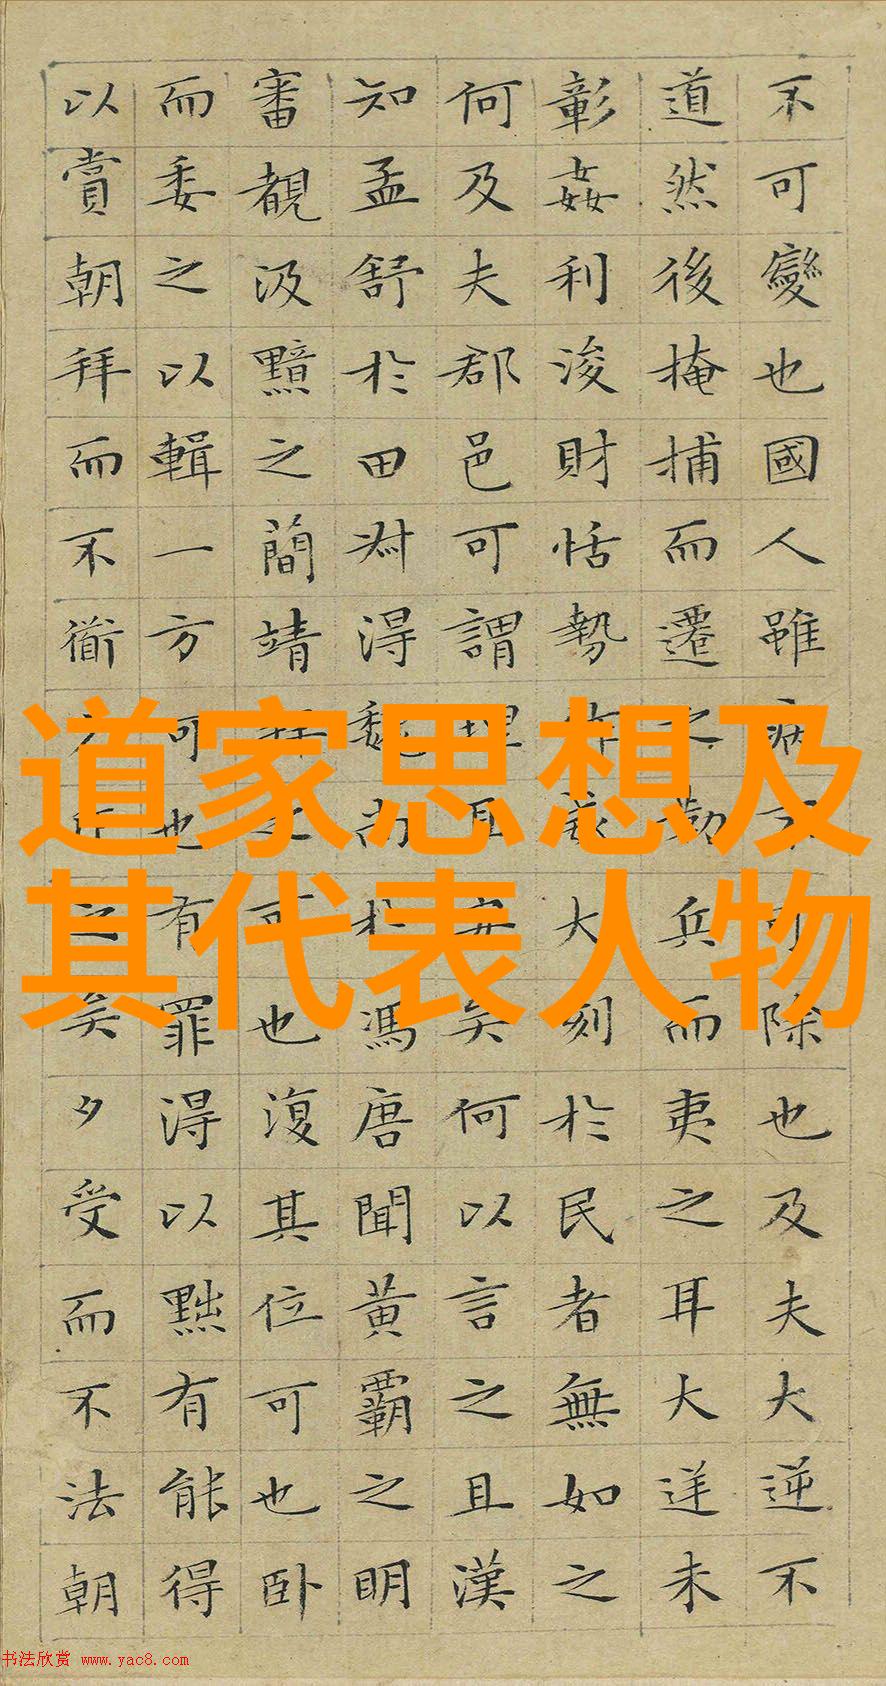 道家思想及
其代表人物
不可變也國人雖病不可除也及夫大逆不
道然後掩捕而遷之勒兵而夷之耳大逆未
彰姦利浚財恬勢作威大刻於民者無如之
何及夫郡邑可謂理且安矣何以言之且漢
知孟舒於田叔得魏尚於馮唐聞黃霸之明
審覩汲黯之簡靖拜之可也復其位可也卧
而委之以輯一方可也有罪得以黜有能得
以賞朝拜而不衜夕斥之矣夕受而不法朝
书法欣赏 www.yac8.com